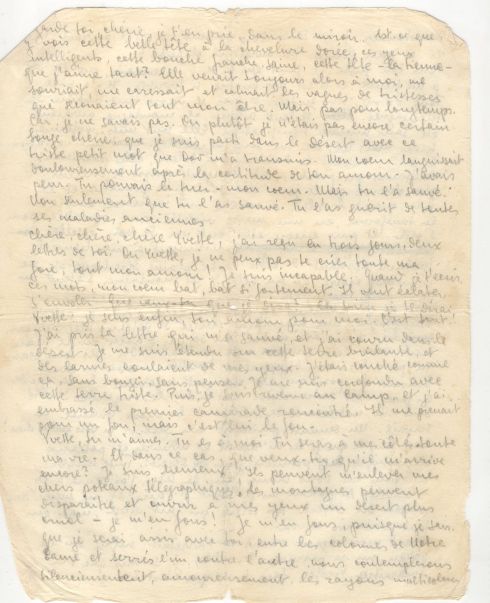 garde toi, chérie, je t'en prie, dans le miroir. Est-ce que
je vois cette belle tête à la chevelure dorée, ces yeux
intelligents, cette bouche franche, saine, cette tête - la tienne -
que j'aime tant? Elle venait toujours alors à moi, me
souriait, me caressait et calmait les vagues de tristesses
qui secouaient tout mon être. Mais pas pour longtemps.
Car je ne savais pas. Ou plutôt je n'étais pas encore certain
Songe chérie, que je suis parti dans le désert avec ce
triste petit mot que m'a transmis. Mon coeur languissait
douloureusement après la certitude de ton amour. J'avais
peur. Tu pouvais le tuer - mon coeur. Mais tu l'a sauvé.
Non seulement que tu l'as sauvé. Tu l'as guérit de toutes
ses maladies anciennes.
Chère, chère, chère Yvette, j'ai reçu en trois jours, deux
lettres de toi. Oh Yvette, je ne peux pas te crier toute ma
joie, tout mon amour! Je suis incapable. Quand je t'écris
ces mots, mon coeur bat, bat si fortement. Il veut éclater,
s'envoler
Yvette! je sens enfin, ton amour pour moi. C'est tout!
J'ai pris ta lettre qui m'a sauvé, et j'ai couru dans le
désert. Je me suis étendu sur cette terre brûlante, et
des larmes coulaient de mes yeux. J'étais couché comme
ça, sans bouger, sans penser. Je me suis confondu avec
cette terre triste. Puis, je suis revenu au camp, et j'ai
embrassé le premier camarade rencontré. Il me prenait
pour un fou, mais c'est lui le fou.
Yvette, tu m'aimes. Tu es à moi. Tu seras à mes côtés toute
ma vie. Et dans ce cas, que veux-tu qu'il m'arrive
encore? Je suis heureux. Ils peuvent m'enlever mes
chers poteaux télégraphiques, les montagnes peuvent
disparaître et ouvrir à mes yeux un désert plus
cruel - je m'en fous! Je m'en fous, puisque je sais
que je serai assis avec toi, entre les colonnes de Notre
Dame et serrés l'un contre l'autre, nous contemplerons
silencieusement, amoureusement les rayons multicolores